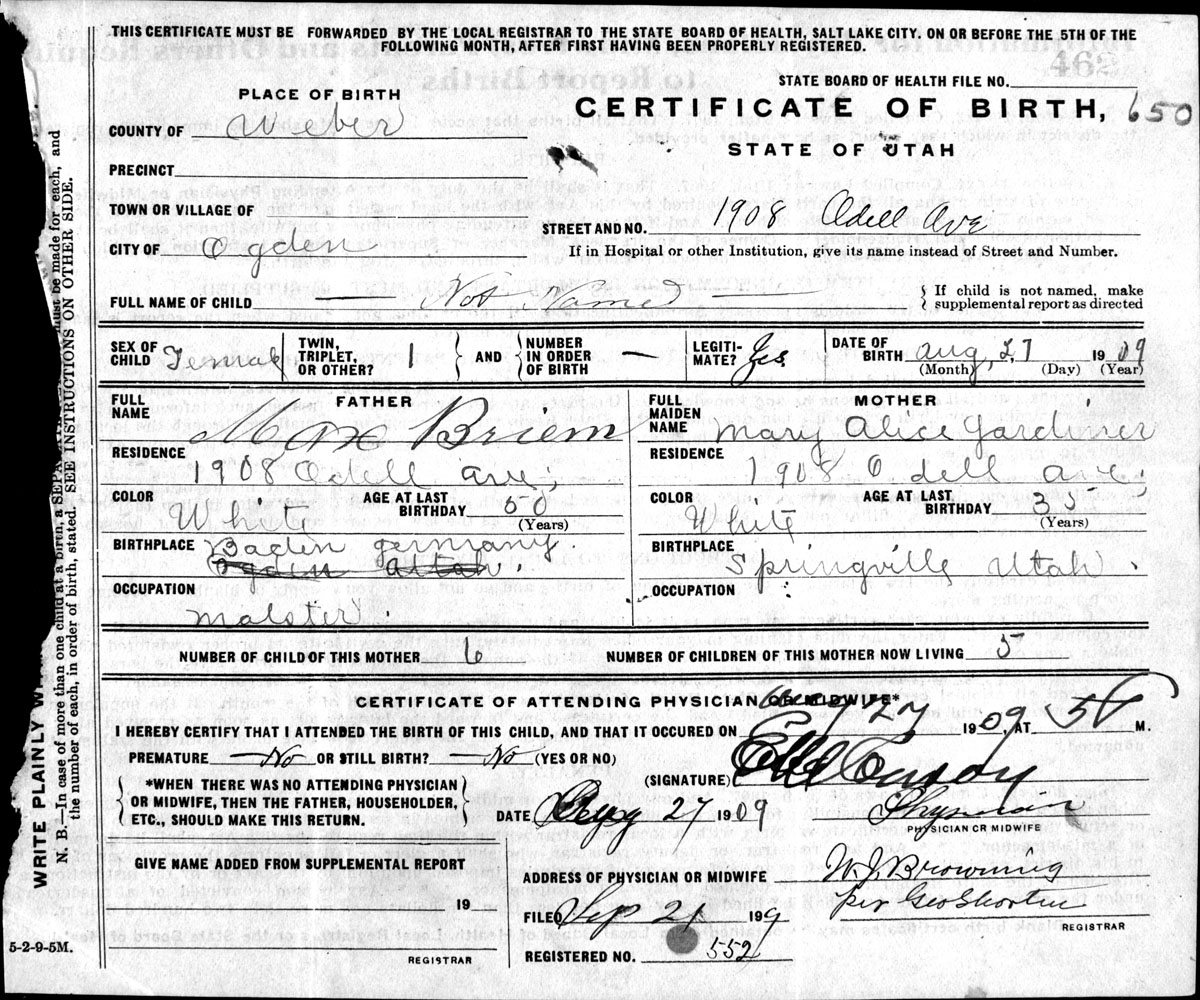 THIS CERTIFICATE MUST BE FORWARDED BY THE LOCAL REGISTRAR TO THE STATE BOARD OF HEALTH, SALT LAKE CITY. ON OR BEFORE THE 5TH OF THE
FOLLOWING MONTH, AFTER FIRST HAVING BEEN PROPERLY REGISTERED.
462
STATE BOARD OF HEALTH FILE NO.
PLACE OF BIRTH
CERTIFICATE OF BIRTH, 650
STATE OF UTAH
COUNTY OF Weber
PRECINCT
TOWN OR VILLAGE OF
STREET AND NO. 1908 Odell Ave
CITY OF Ogden
If in Hospital or other Institution, give its name instead of Street and Number.
FULL NAME OF CHILD — Not Named —
If child is not named, make
supplemental report as directed
SEX OF CHILD Female
TWIN, TRIPLET, OR OTHER? 1
AND
NUMBER IN ORDER OF BIRTH —
LEGITIMATE? Yes
DATE OF BIRTH Aug, 27 1909
(Month) (Day) (Year)
FATHER
FULL NAME Max Briem
RESIDENCE
1908 Odell ave,
COLOR Whit
AGE AT LAST BIRTHDAY 50
(Years)
BIRTHPLACE Baden germany.
Ogden Utah.
OCCUPATION
malster.
MOTHER
FULL MAIDEN NAME Mary Alice Gardiner
RESIDENCE
1908 Odell ave,
COLOR White
AGE AT LAST BIRTHDAY 35
(Years)
BIRTHPLACE
Springville Utah.
OCCUPATION
NUMBER OF CHILD OF THIS MOTHER 6
NUMBER OF CHILDREN OF THIS MOTHER NOW LIVING 5
CERTIFICATE OF ATTENDING PHYSICIAN OR MIDWIFE*
I HEREBY CERTIFY THAT I ATTENDED THE BIRTH OF THIS CHILD, AND THAT IT OCCURED ON 27 1909, AT 5 M.
PREMATURE — No OR STILL BIRTH? — No (YES OR NO)
(SIGNATURE)
*WHEN THERE WAS NO ATTENDING PHYSICIAN
OR MIDWIFE, THEN THE FATHER, HOUSEHOLDER,
ETC., SHOULD MAKE THIS RETURN.
DATE 27 1909
Physician
PHYSICIAN OR MIDWIFE
GIVE NAME ADDED FROM SUPPLEMENTAL REPORT
19
REGISTRAR
ADDRESS OF PHYSICIAN OR MIDWIFE W. J. Browning
FILED Sep 21 199
per Geo Shorten
REGISTRAR
REGISTERED NO. 552
5-2-9-5M.
WRITE PLAINLY
N. B.—In case of more than one child at a birth, a must be made for each, and
the number of each, in order of birth, stated. SEE INSTRUCTIONS ON OTHER SIDE.